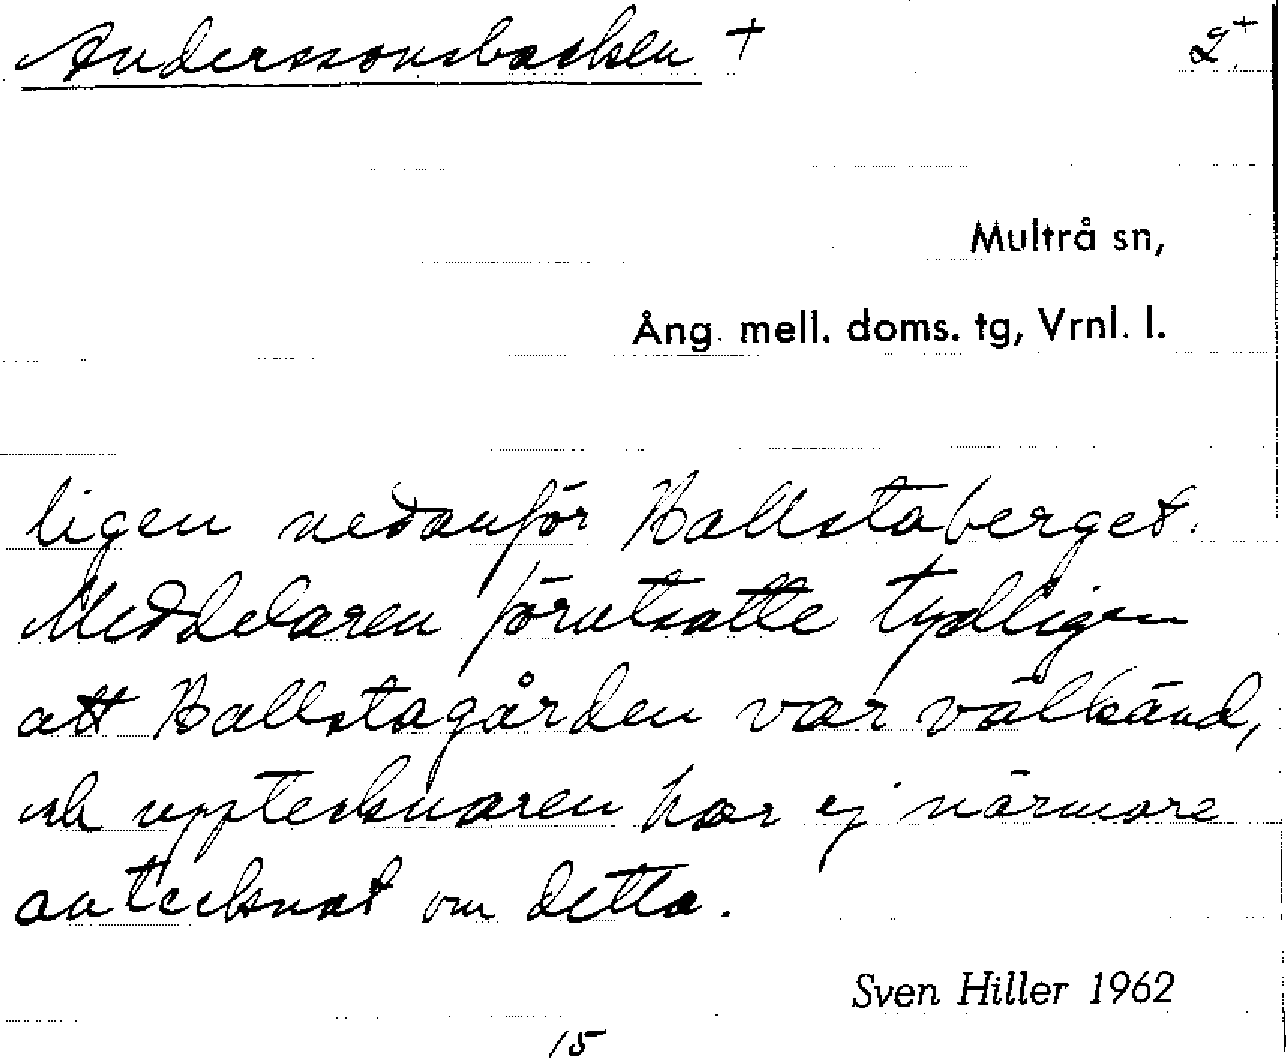 Anderssonsbacken + 2+
Multrå sn,
Ång. mell. doms. tg, Vrnl. l.
ligen nedanför Hallstaberget.
Meddelaren förutsatte tydligen
att Hallstagården var välkänd,
och upptecknaren har ej närmare
antecknat om detta.
Sven Hiller 1962
15